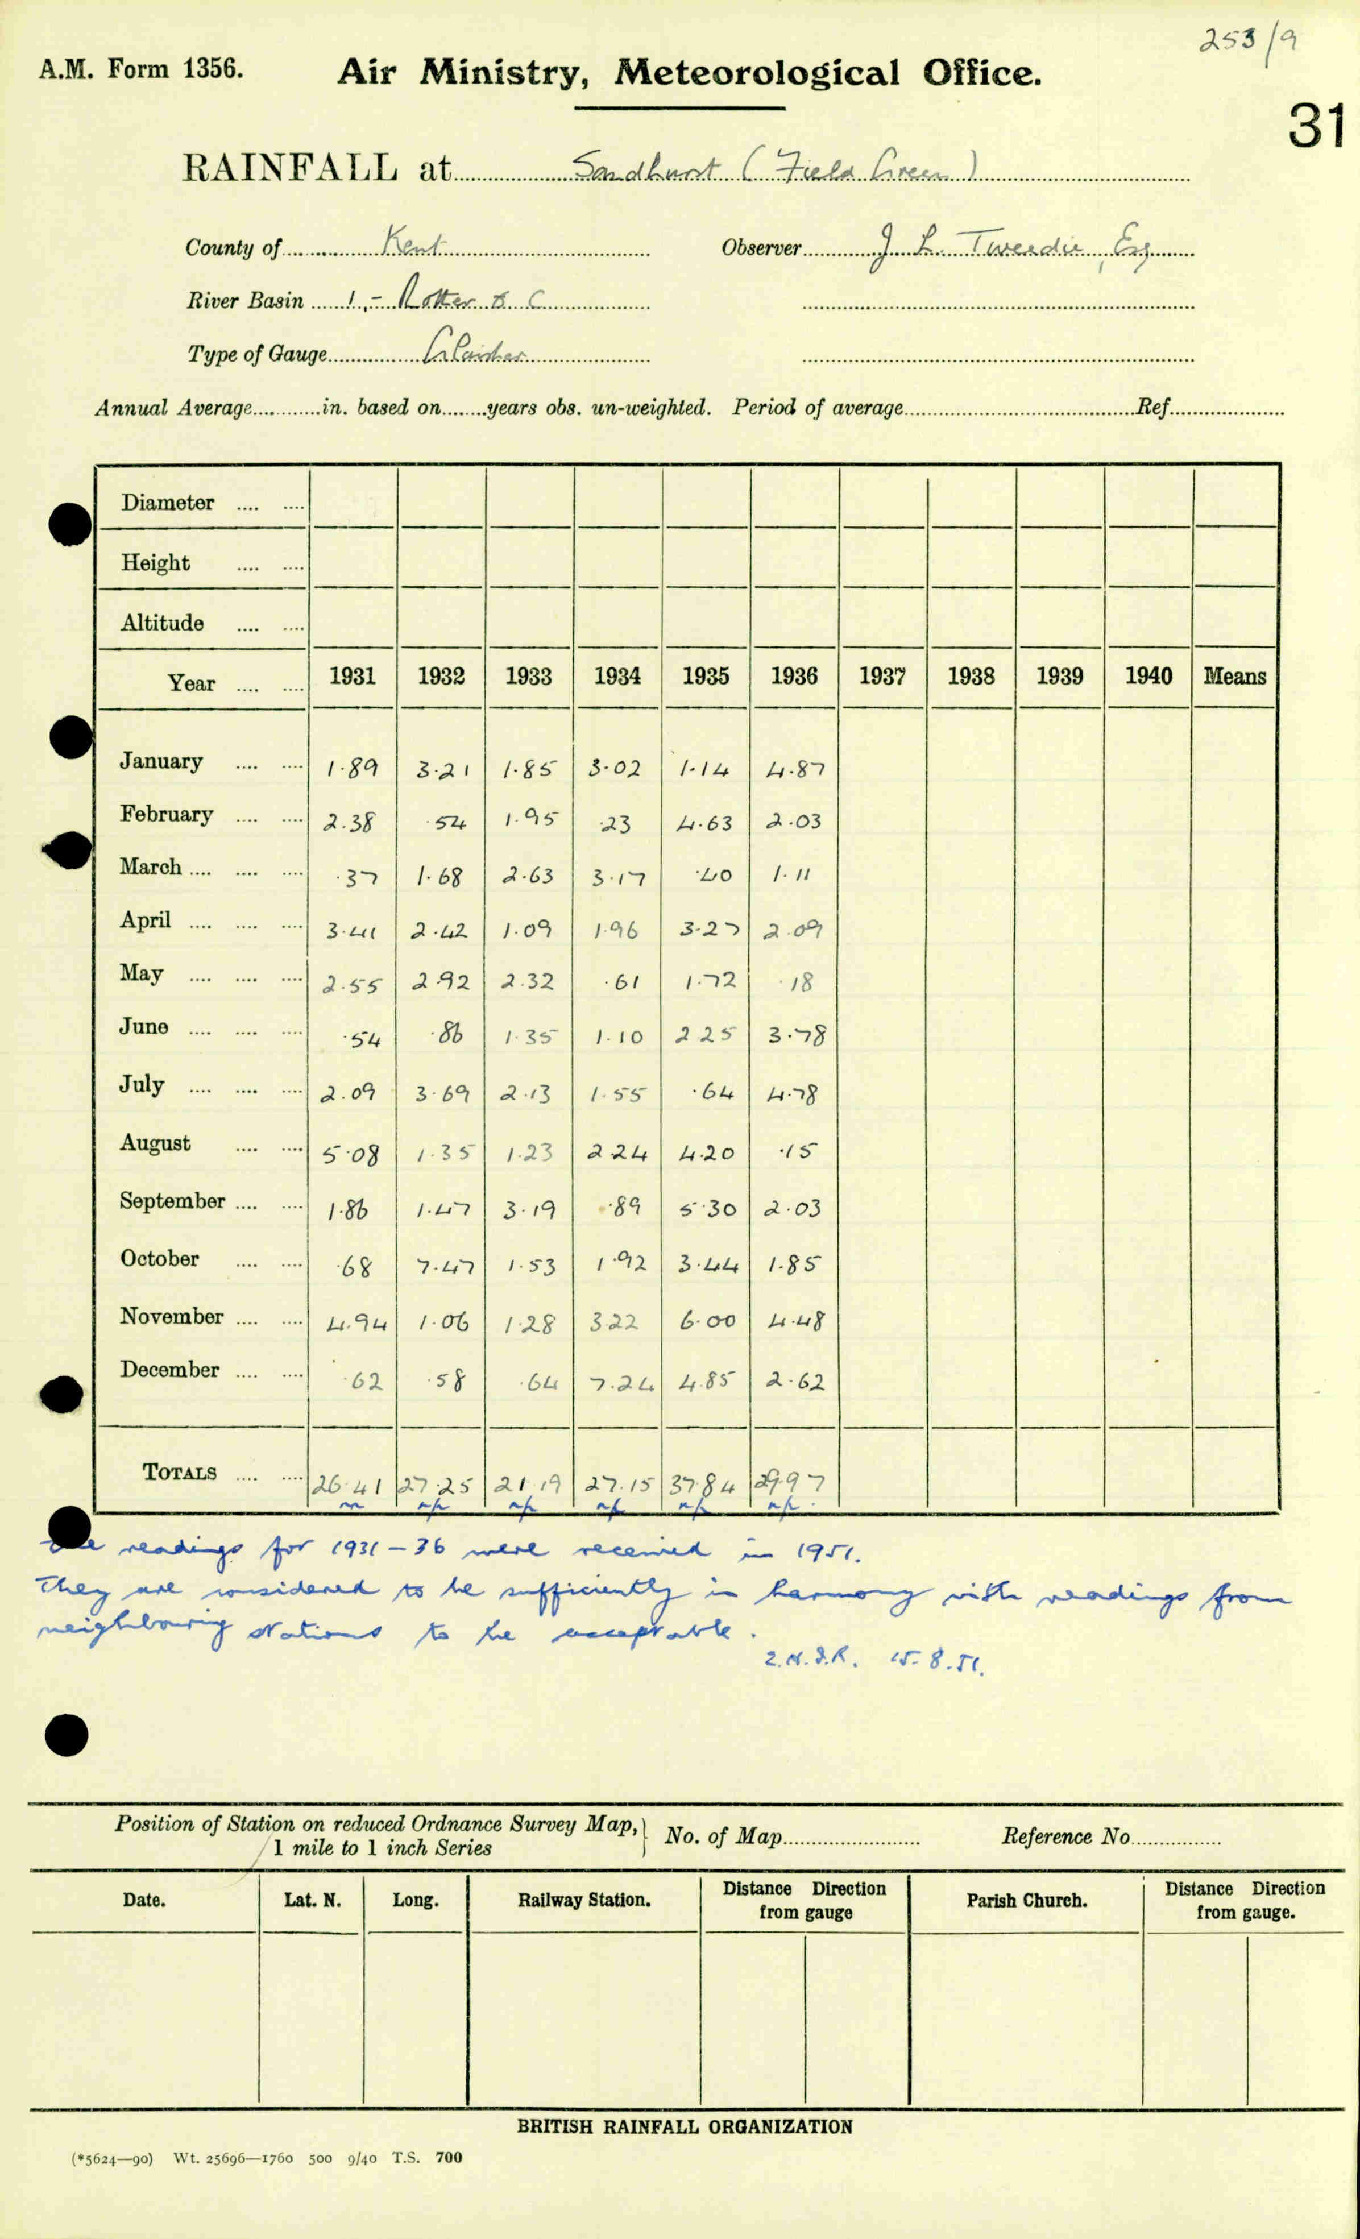 253/9
A.M. Form 1356. Air Ministry, Meteorological Office.
31
RAINFALL at Sandhurst (Field Green)
County of Kent Observer J. L. Tweedie, Esq
River Basin 1,- Rother & C
Type of Gauge Glaisher
Annual Average in. based on years obs. un-weighted. Period of average Ref
Diameter
Height
Altitude
Year 1931 1932 1933 1934 1935 1936 1937 1938 1939 1940 Means
January 1.89 3.21 1.85 3.02 1.14 4.87
February 2.38 .54 1.95 .23 4.63 2.03
March .37 1.68 2.63 3.17 .40 1.11
April 3.41 2.42 1.09 1.96 3.27 2.09
May 2.55 2.92 2.32 .61 1.72 .18
June .54 .86 1.35 1.10 2 25 3.78
July 2.09 3.69 2.13 1.55 .64 4.78
August 5.08 1.35 1.23 2 24 4.20 .15
September 1.86 1.47 3.19 .89 5.30 2.03
October .68 7.47 1.53 1.92 3.44 1.85
November 4.94 1.06 1.28 3 22 6.00 4.48
December .62 .58 .64 7.24 4.85 2.62
TOTALS 26.41 27.25 21.19 27.15 37.84 29.97
The readings for 1931-36 were received in 1951.
They are considered to be sufficiently in harmony with readings from
neighbouring stations to be acceptable.
15.8.51.
Position of Station on reduced Ordnance Survey Map, } No. of Map Reference No
1 mile to 1 inch Series
Date. Lat. N. Long. Railway Station. Distance Direction from gauge Parish Church. Distance Direction from gauge.
BRITISH RAINFALL ORGANIZATION
(*5624—90) Wt. 25696—1760 500 9/40 T.S. 700